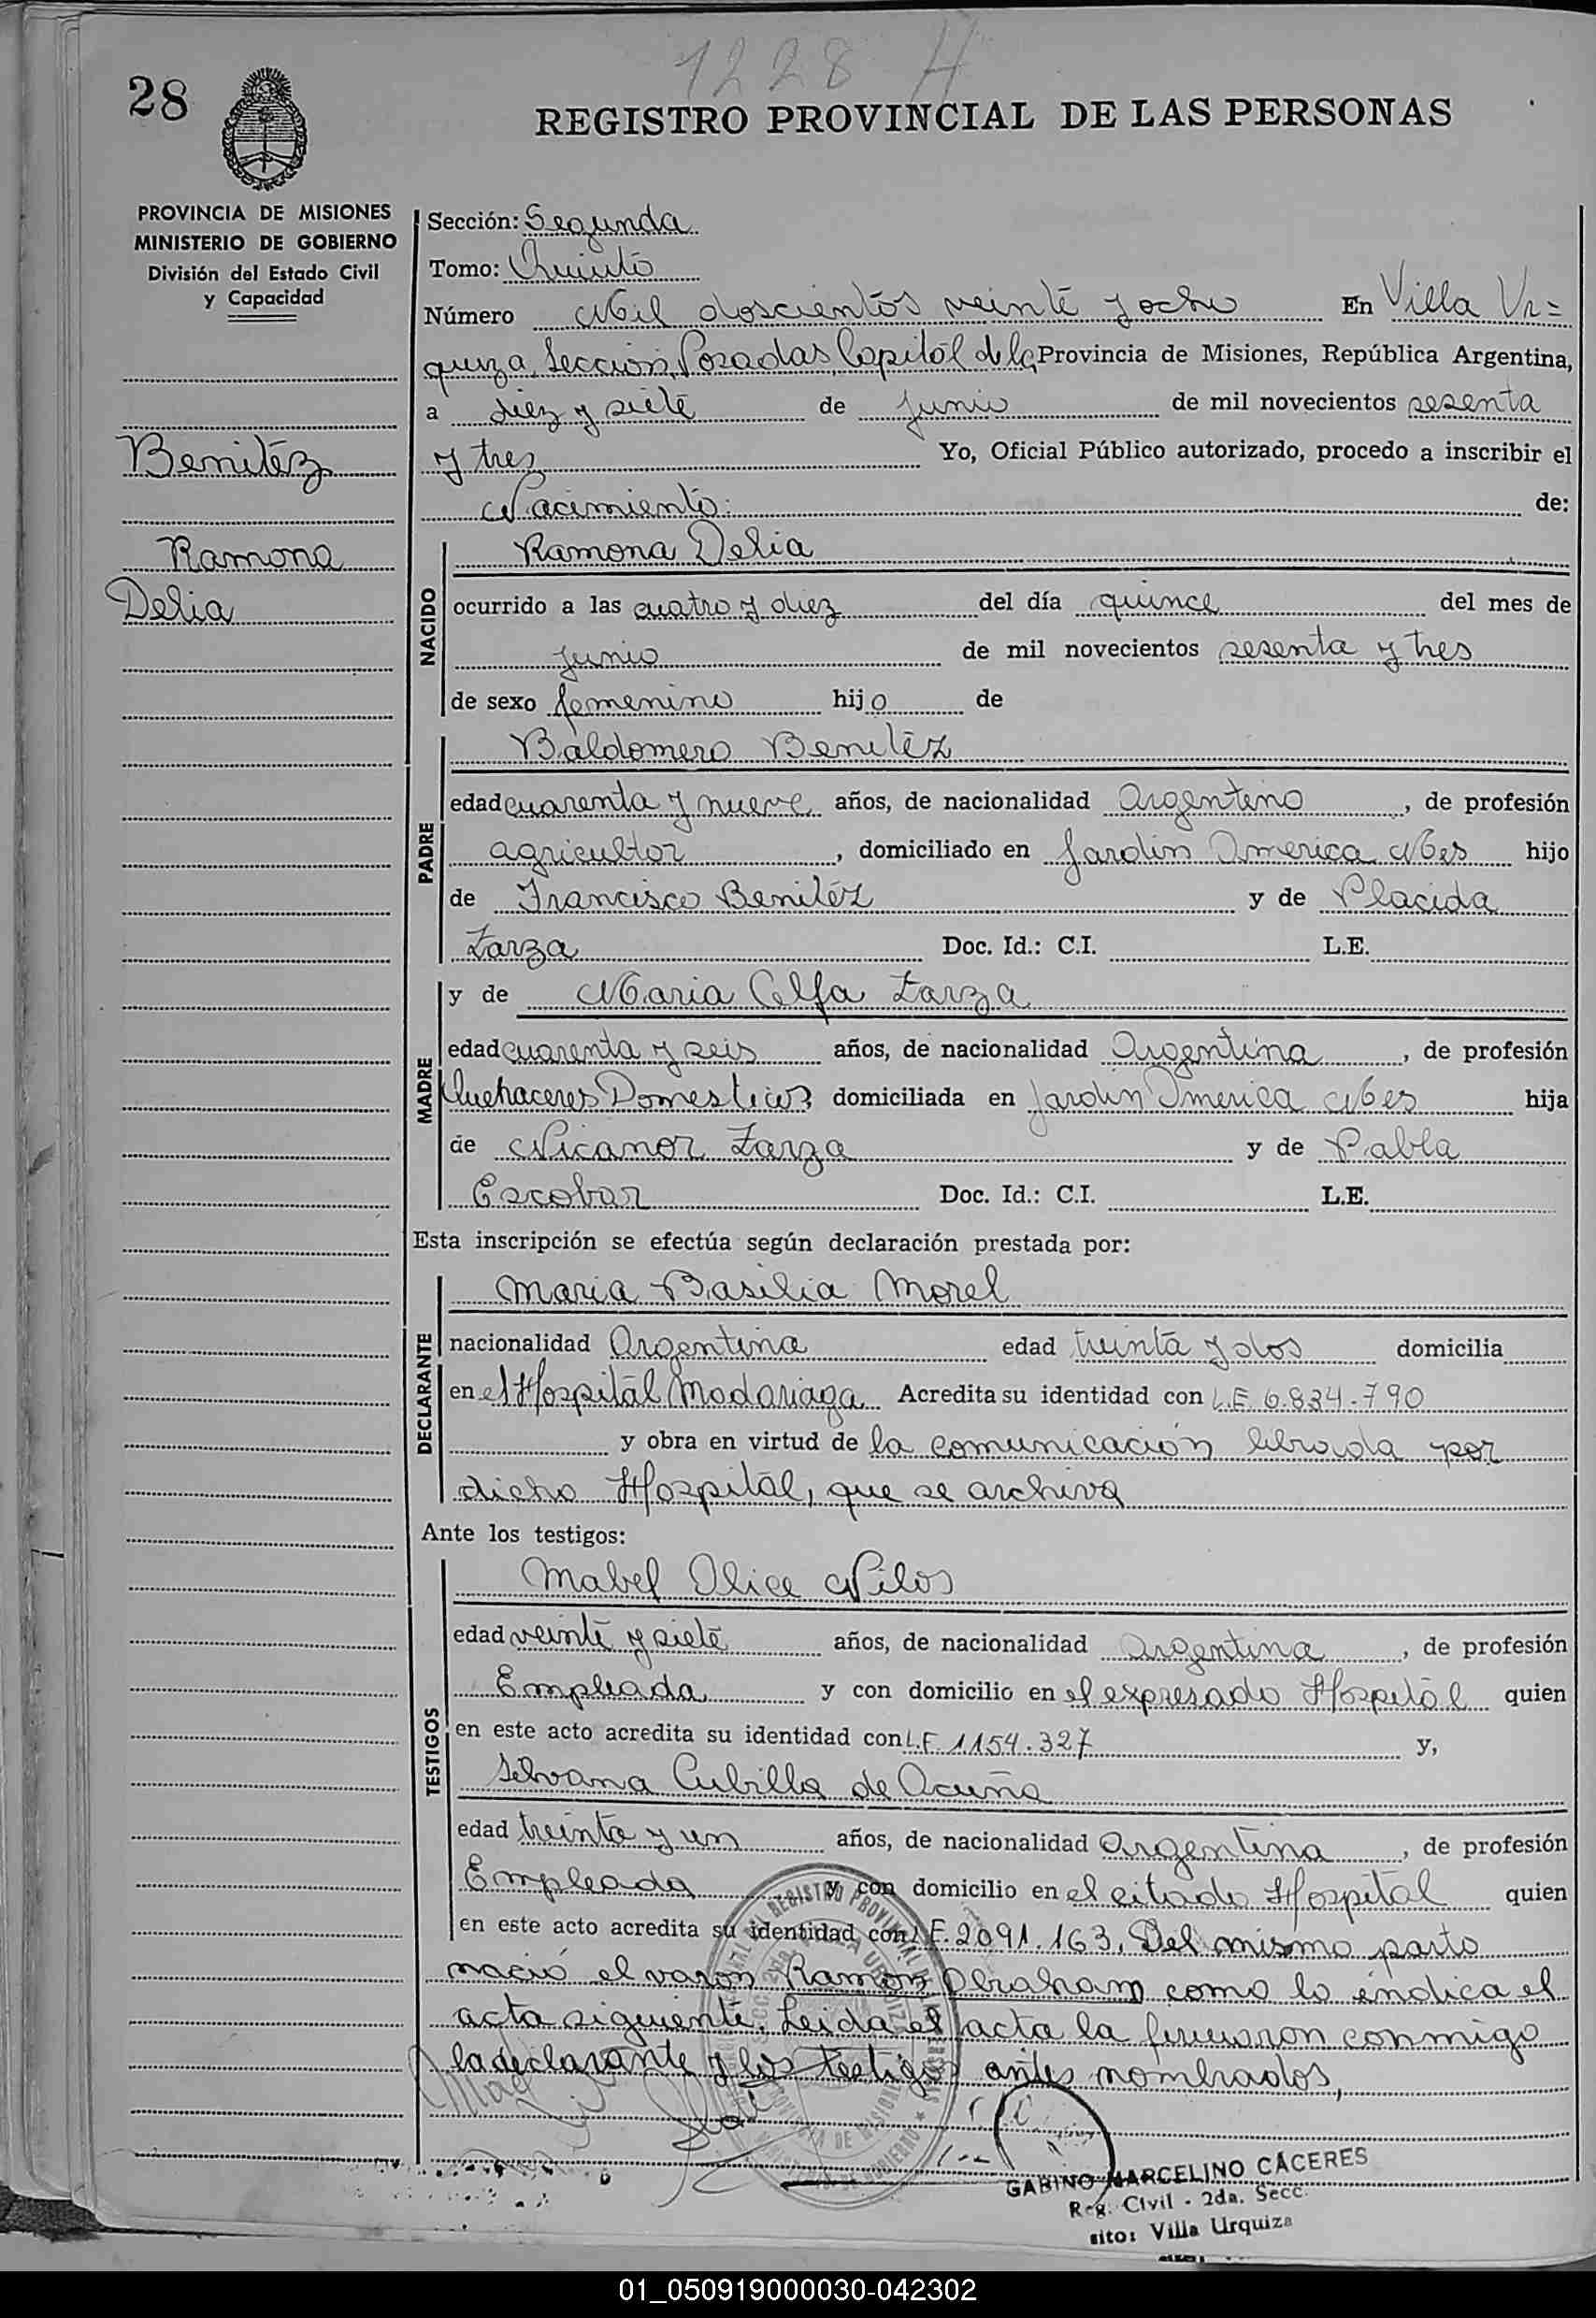 1228 H
28
REGISTRO PROVINCIAL DE LAS PERSONAS
PROVINCIA DE MISIONES
MINISTERIO DE GOBIERNO
División del Estado Civil
y Capacidad
Benitéz
Ramona
Delia
Sección: Segunda
Tomo: Quinto
Número Mil doscientos veinte y ocho En Villa Ur=
quiza, Sección, Posadas, Capital de la Provincia de Misiones, República Argentina,
a diez y siete de junio de mil novecientos sesenta
y tres Yo, Oficial Público autorizado, procedo a inscribir el
Nacimiento: de:
NACIDO
Ramona Delia
ocurrido a las cuatro y diez del día quince del mes de
junio de mil novecientos sesenta y tres
de sexo femenino hijo de
PADRE
Baldomero Benitéz
edad cuarenta y nueve años, de nacionalidad Argentino, de profesión
agricultor, domiciliado en Jardin America Mes hijo
de Francisco Benitéz y de Placida
Zarza Doc. Id.: C.I. L.E.
MADRE
y de Maria Zarza
edad cuarenta y seis años, de nacionalidad Argentina, de profesión
Quehaceres Domesticos domiciliada en Jardin America Mes hija
de Nicanor Zarza y de Pabla
Escobar Doc. Id.: C.I. L.E.
Esta inscripción se efectúa según declaración prestada por:
DECLARANTE
Maria Basilia Morel
nacionalidad Argentina edad treinta y dos domicilia
en el Hospital Madariaga Acredita su identidad con L.E. 6.834.790
y obra en virtud de la comunicación librada por
dicho Hospital, que se archiva
Ante los testigos:
TESTIGOS
Mabel Alice Nilos
edad veinte y siete años, de nacionalidad Argentina, de profesión
Empleada y con domicilio en el expresado Hospital quien
en este acto acredita su identidad con L.E. 1.154.327 y,
Silvana Cubilla de Acuña
edad treinta y un años, de nacionalidad Argentina, de profesión
Empleada y con domicilio en el citado Hospital quien
en este acto acredita su identidad con L.E. 2091.163. Del mismo parto
nació el varon Ramon Abraham como lo indica el
acta siguiente. Leida el acta la firmaron conmigo
la declarante y los testigos antes nombrados,
GABINO MARCELINO CÁCERES
Reg. Civil - 2da. Secc.
sito: Villa Urquiza
01_050919000030-042302